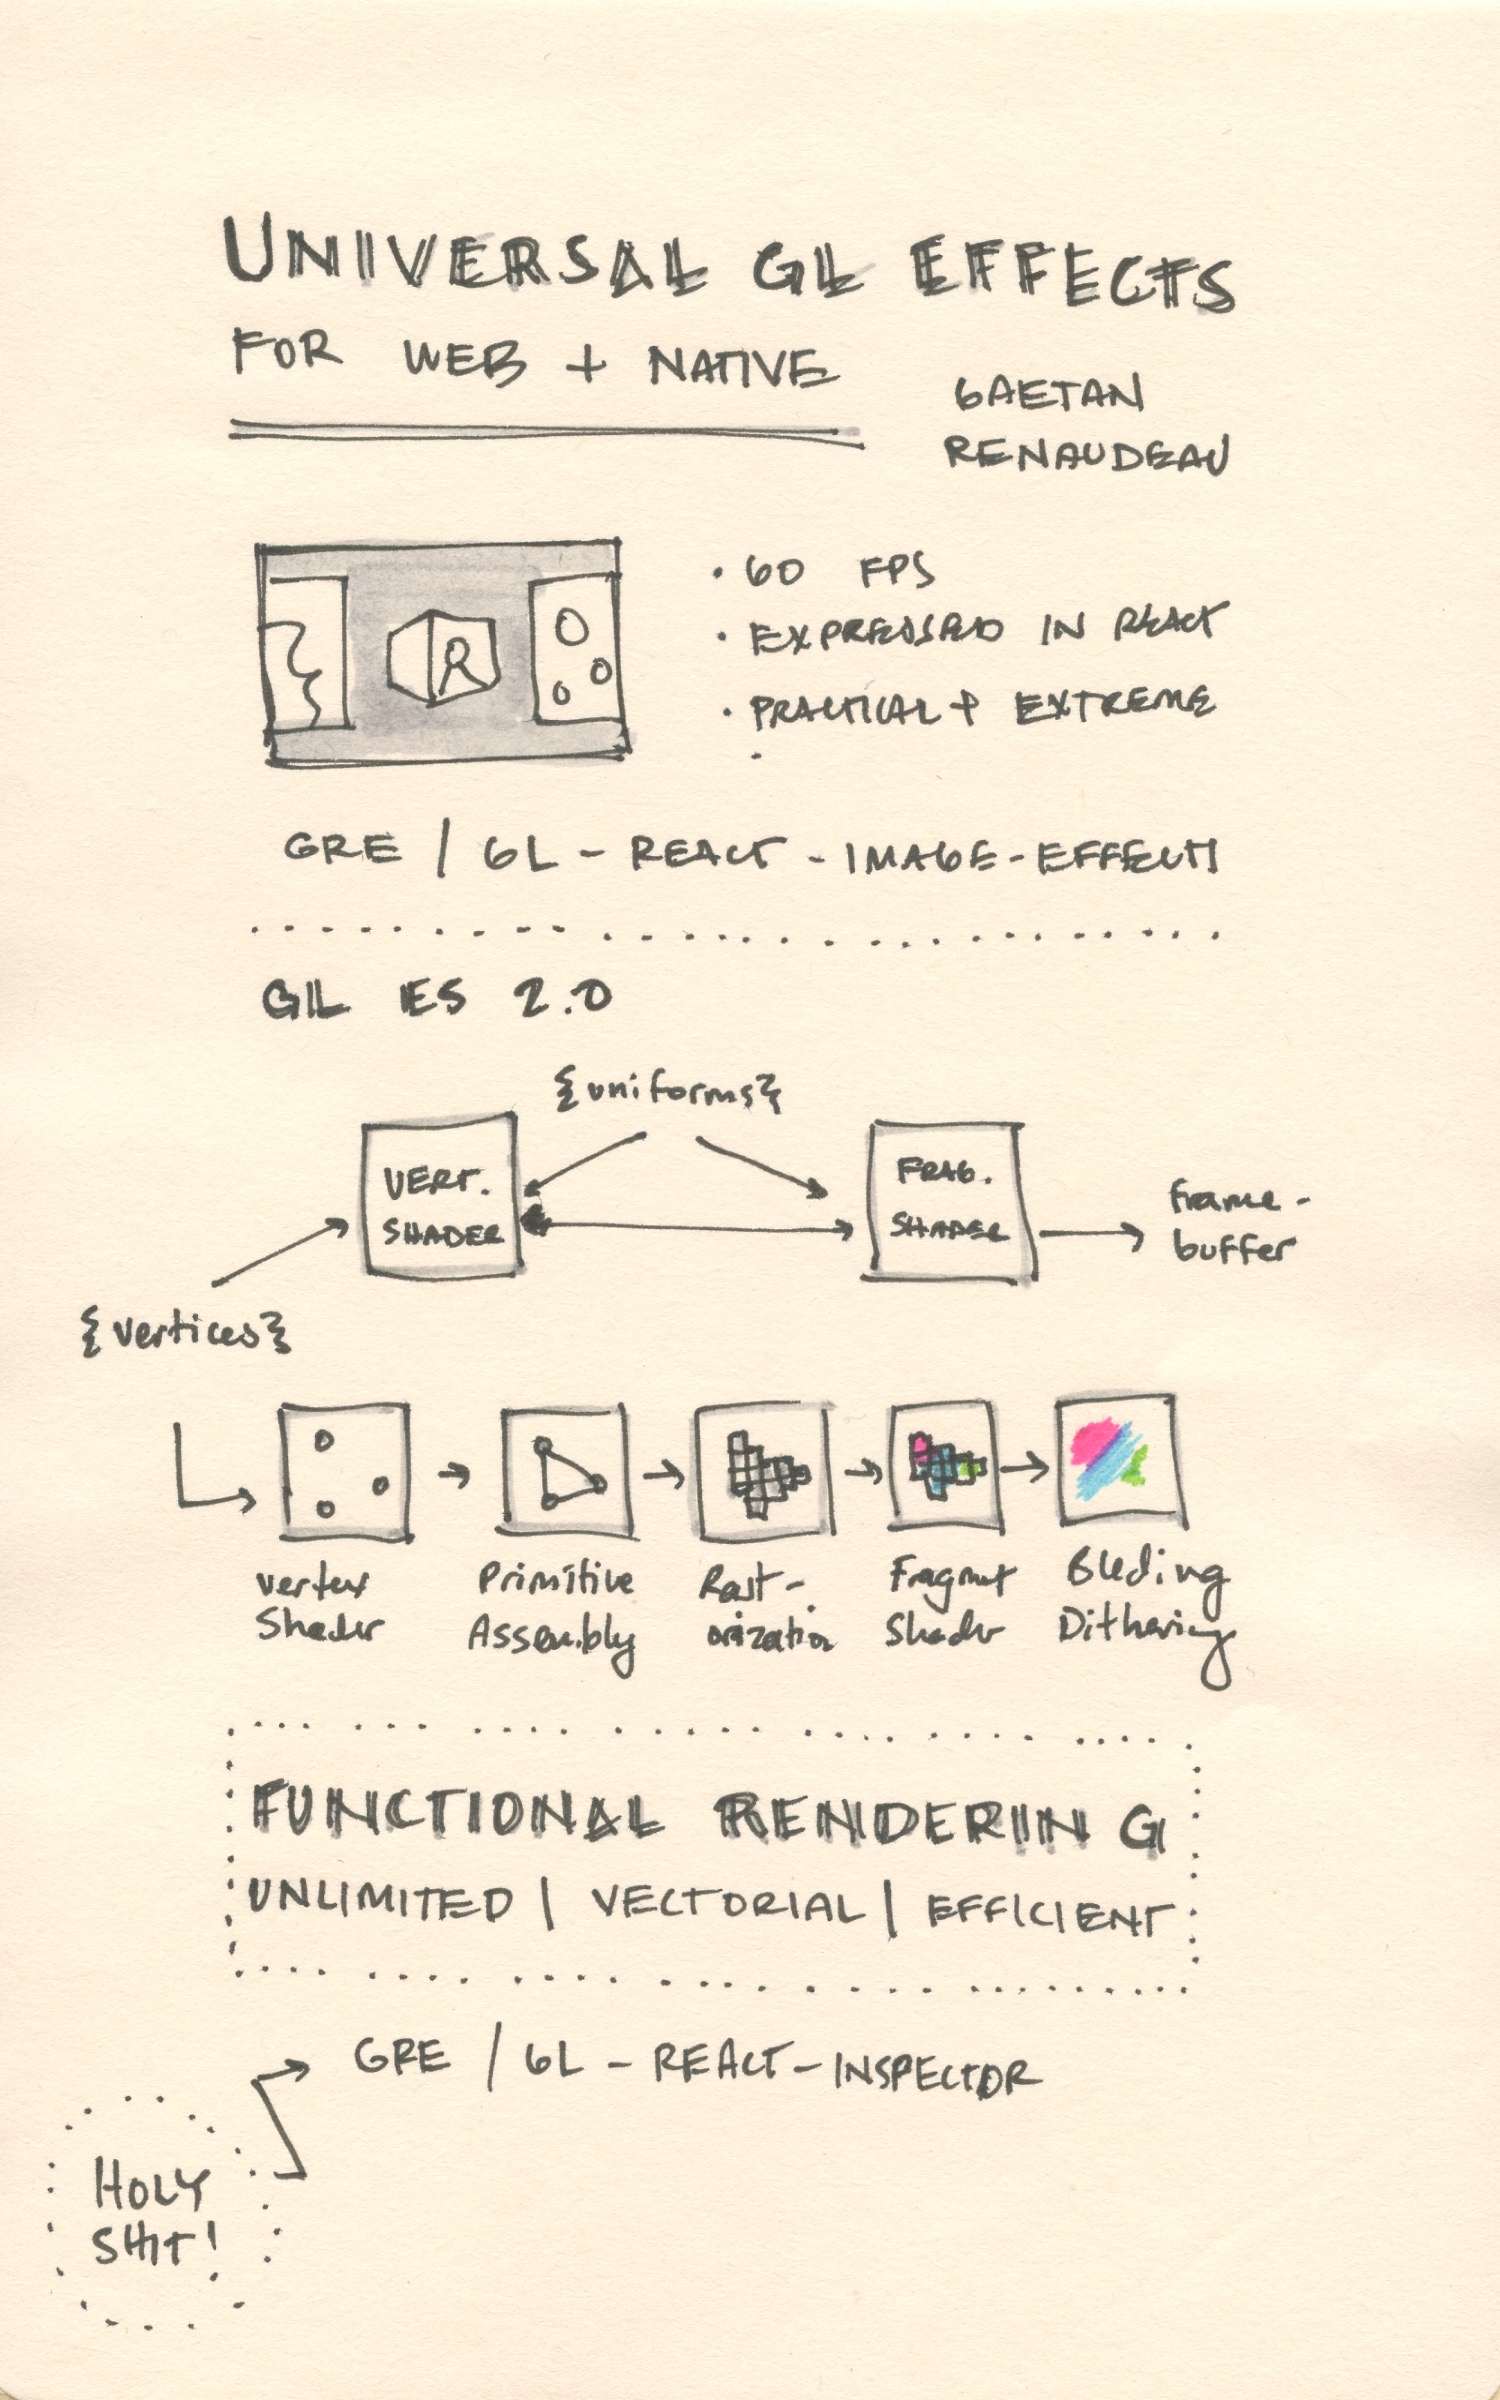 UNIVERSAL GL EFFECTS
FOR WEB + NATIVE
GAETAN
RENAUDEAU
R
• 60 FPS
• EXPRESSED IN REACT
• PRACTICAL + EXTREME
•
GRE / GL - REACT - IMAGE - EFFECTS
GL ES 2.0
{uniforms}
VERT.
SHADER
FRAG.
SHADER
frame-
buffer
{vertices}
Vertex
Shader
Primitive
Assembly
Rast-
orization
Fragmnt
Shader
Bleding
Dithering
FUNCTIONAL RENDERING
UNLIMITED | VECTORIAL | EFFICIENT
GRE / GL - REACT - INSPECTOR
HOLY
SHIT!